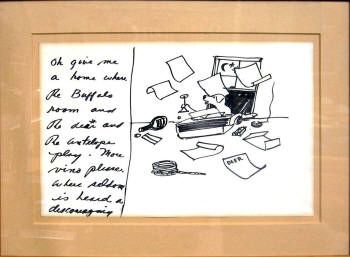 Oh give me
a home where
the Buffalo
room and
the dear and
the antelope
play. More
vino please.
where seldom
is heard a
discouraging
DEER